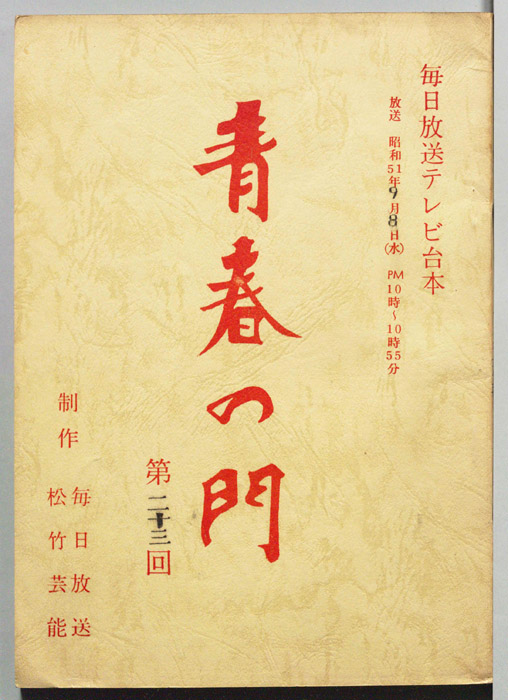 毎日放送テレビ台本
放送 昭和51年9月8日(水) PM10時~10時55分
青春の門
第二十三回
制作 毎日放送
松竹芸能